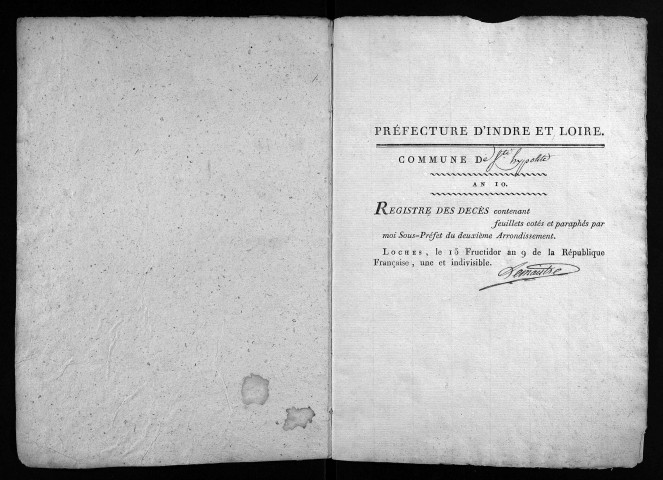 PRÉFECTURE D'INDRE ET LOIRE.
COMMUNE De Ste hypolite
AN 10.
REGISTRE DES DECÈS contenant
feuillets cotés et paraphés par
moi Sous-Préfet du deuxième Arrondissement.
LOCHES, le 15 Fructidor an 9 de la République
Française, une et indivisible.
Lemaistre